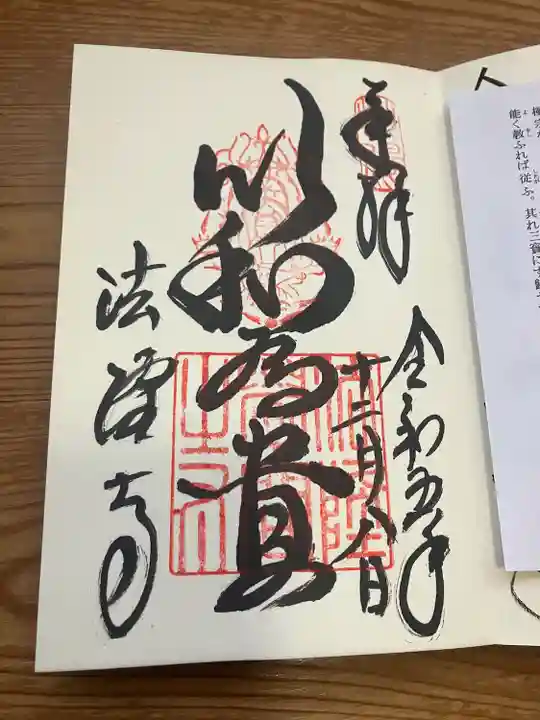 能く教ふれば従ふ。其れ三寶に
奉拝
令和五年
十二月八日
以和為貴
法隆寺